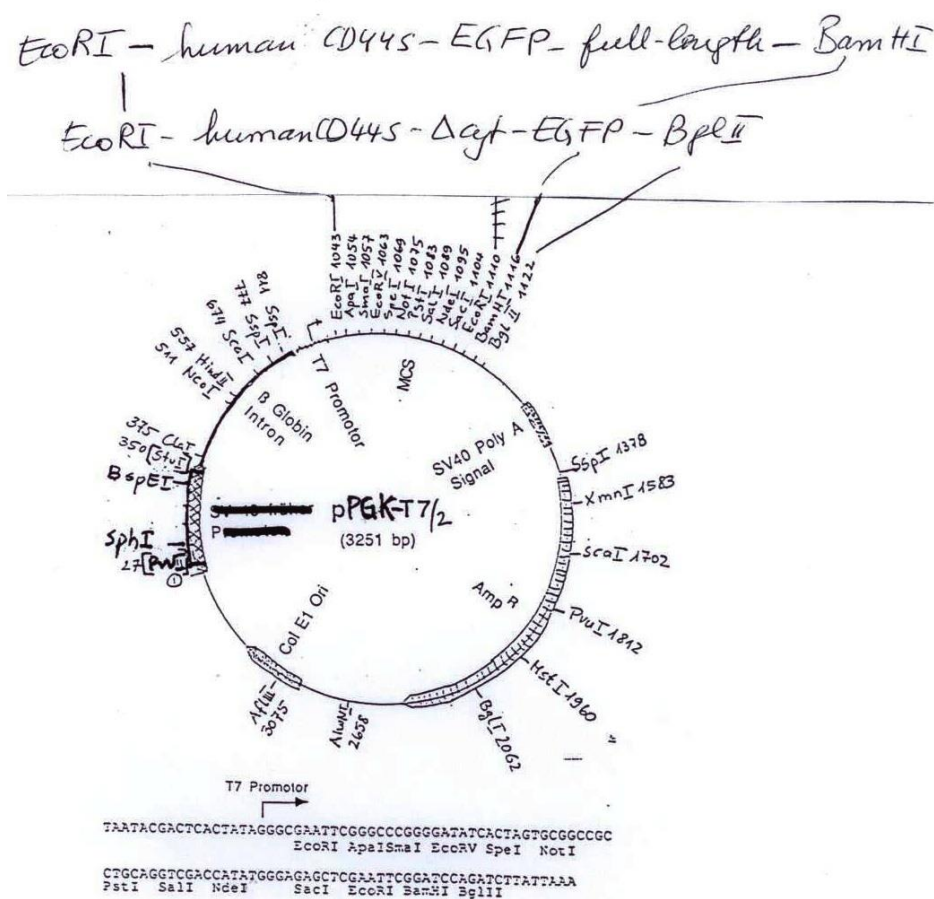 EcoRI – human CD44s – EGFP – full-length – BamHI
EcoRI – humanCD44s – Δcyt – EGFP – BglII
EcoRI 1043
ApaI 1054
SmaI 1057
EcoRV 1063
SpeI 1069
NotI 1075
PstI 1083
SalI 1089
NdeI 1095
SacI 1104
EcoRI 1110
BamHI 1116
Bgl II 1122
818 SspI
777 SspI
674 ScaI
557 HindII
511 NcoI
375 ClaI
350 [StuI]
BspEI
SphI
27 [PvuII]
①
T7 Promotor
β Globin
Intron
MCS
SV40 Poly A
Signal
pPGK-T7/2
(3251 bp)
Amp R
Col E1 Ori
SspI 1378
XmnI 1583
ScaI 1702
PvuI 1812
HstI 1960
BglI 2062
AlwNI
2658
AflIII
3075
T7 Promotor
TAATACGACTCACTATAGGGCGAATTCGGGCCCGGGGATATCACTAGTGCGGCCGC
EcoRI ApaISmaI EcoRV SpeI NotI
CTGCAGGTCGACCATATGGGAGAGCTCGAATTCGGATCCAGATCTTATTAAA
PstI SalI NdeI SacI EcoRI BamHI BglII